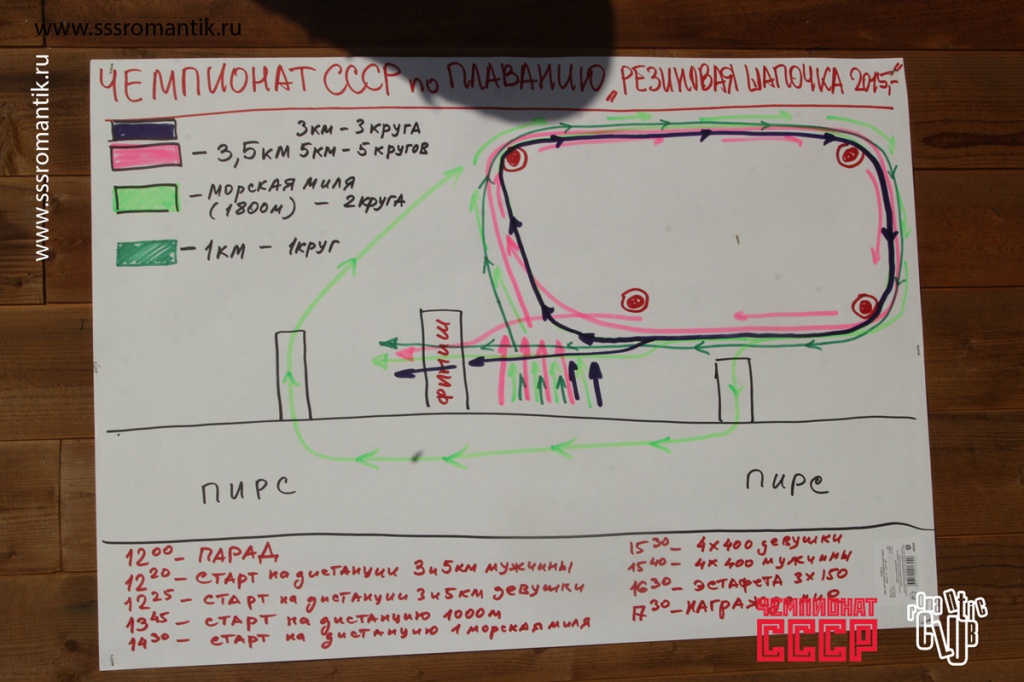 www.sssromantik.ru
www.sssromantik.ru
ЧЕМПИОНАТ СССР по ПЛАВАНИЮ „РЕЗИНОВАЯ ШАПОЧКА 2015г"
3км – 3 круга
– 3,5 км 5км – 5 кругов
– морская миля
(1800м) – 2 круга
– 1 км – 1 круг
ФИНИШ
ПИРС
ПИРС
12 00 – ПАРАД
12 20 – СТАРТ на дистанции 3 и 5 км мужчины
12 25 – СТАРТ на дистанции 3 и 5 км девушки
13 45 – СТАРТ на дистанцию 1000м
14 30 – СТАРТ на дистанцию 1 морская миля
15 30 – 4х400 девушки
15 40 – 4х400 мужчины
16 30 – ЭСТАФЕТА 3х150
17 30 – НАГРАЖДЕНИЕ
ЧЕМПИОНАТ
СССР
romantic
CLUB